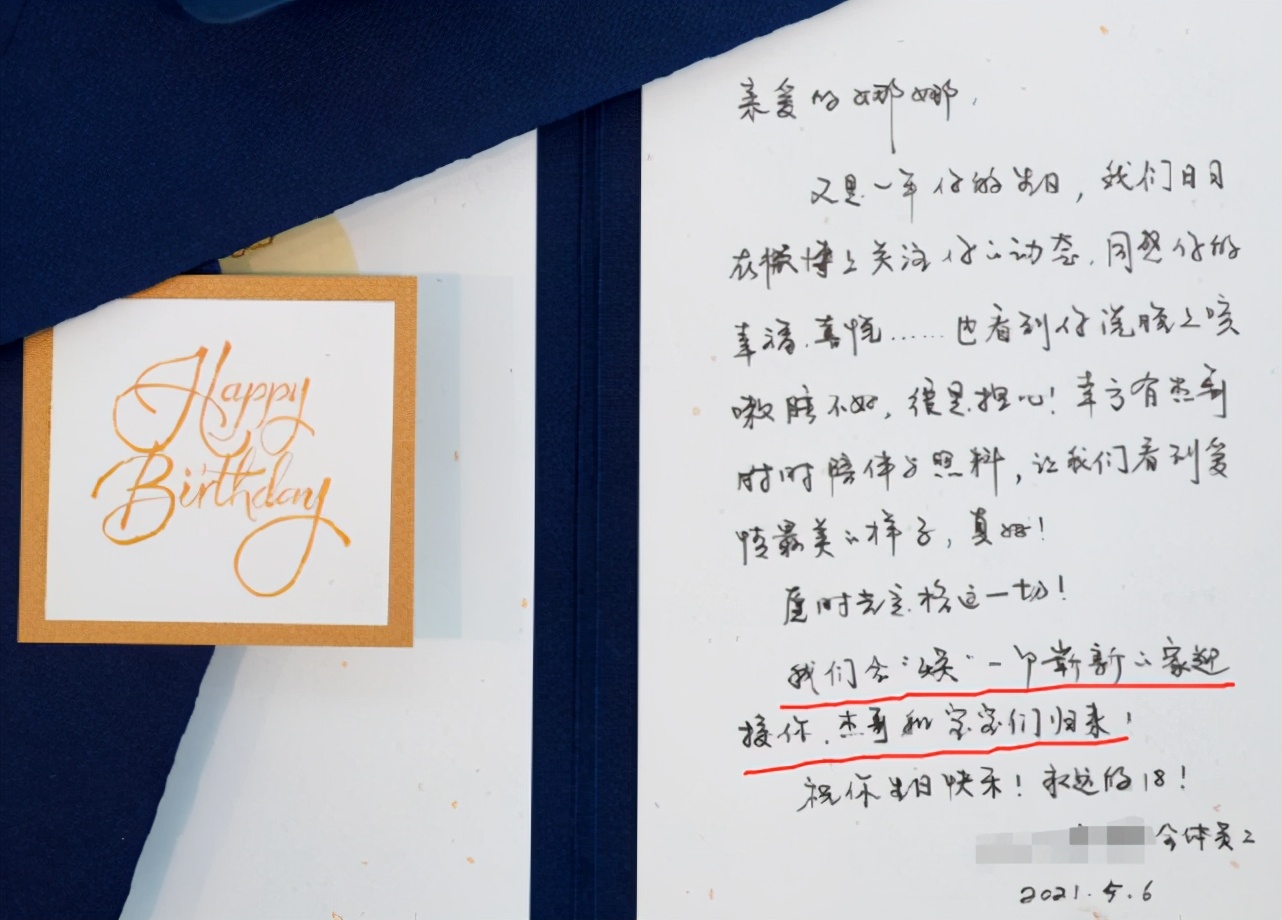 Happy
Birthday
亲爱的娜娜,
又是一年你的生日，我们日日
在微博上关注你的动态,同感你的
幸福、喜悦……也看到你说晚上咳
嗽睡不好，很是担心！幸亏有杰哥
时时陪伴与照料，让我们看到爱
情最美的样子，真好！
愿时光定格这一切！
我们会“焕”一个崭新的家迎
接你、杰哥和宝宝们归来！
祝你生日快乐！永远的18！
全体员工
2021.5.6